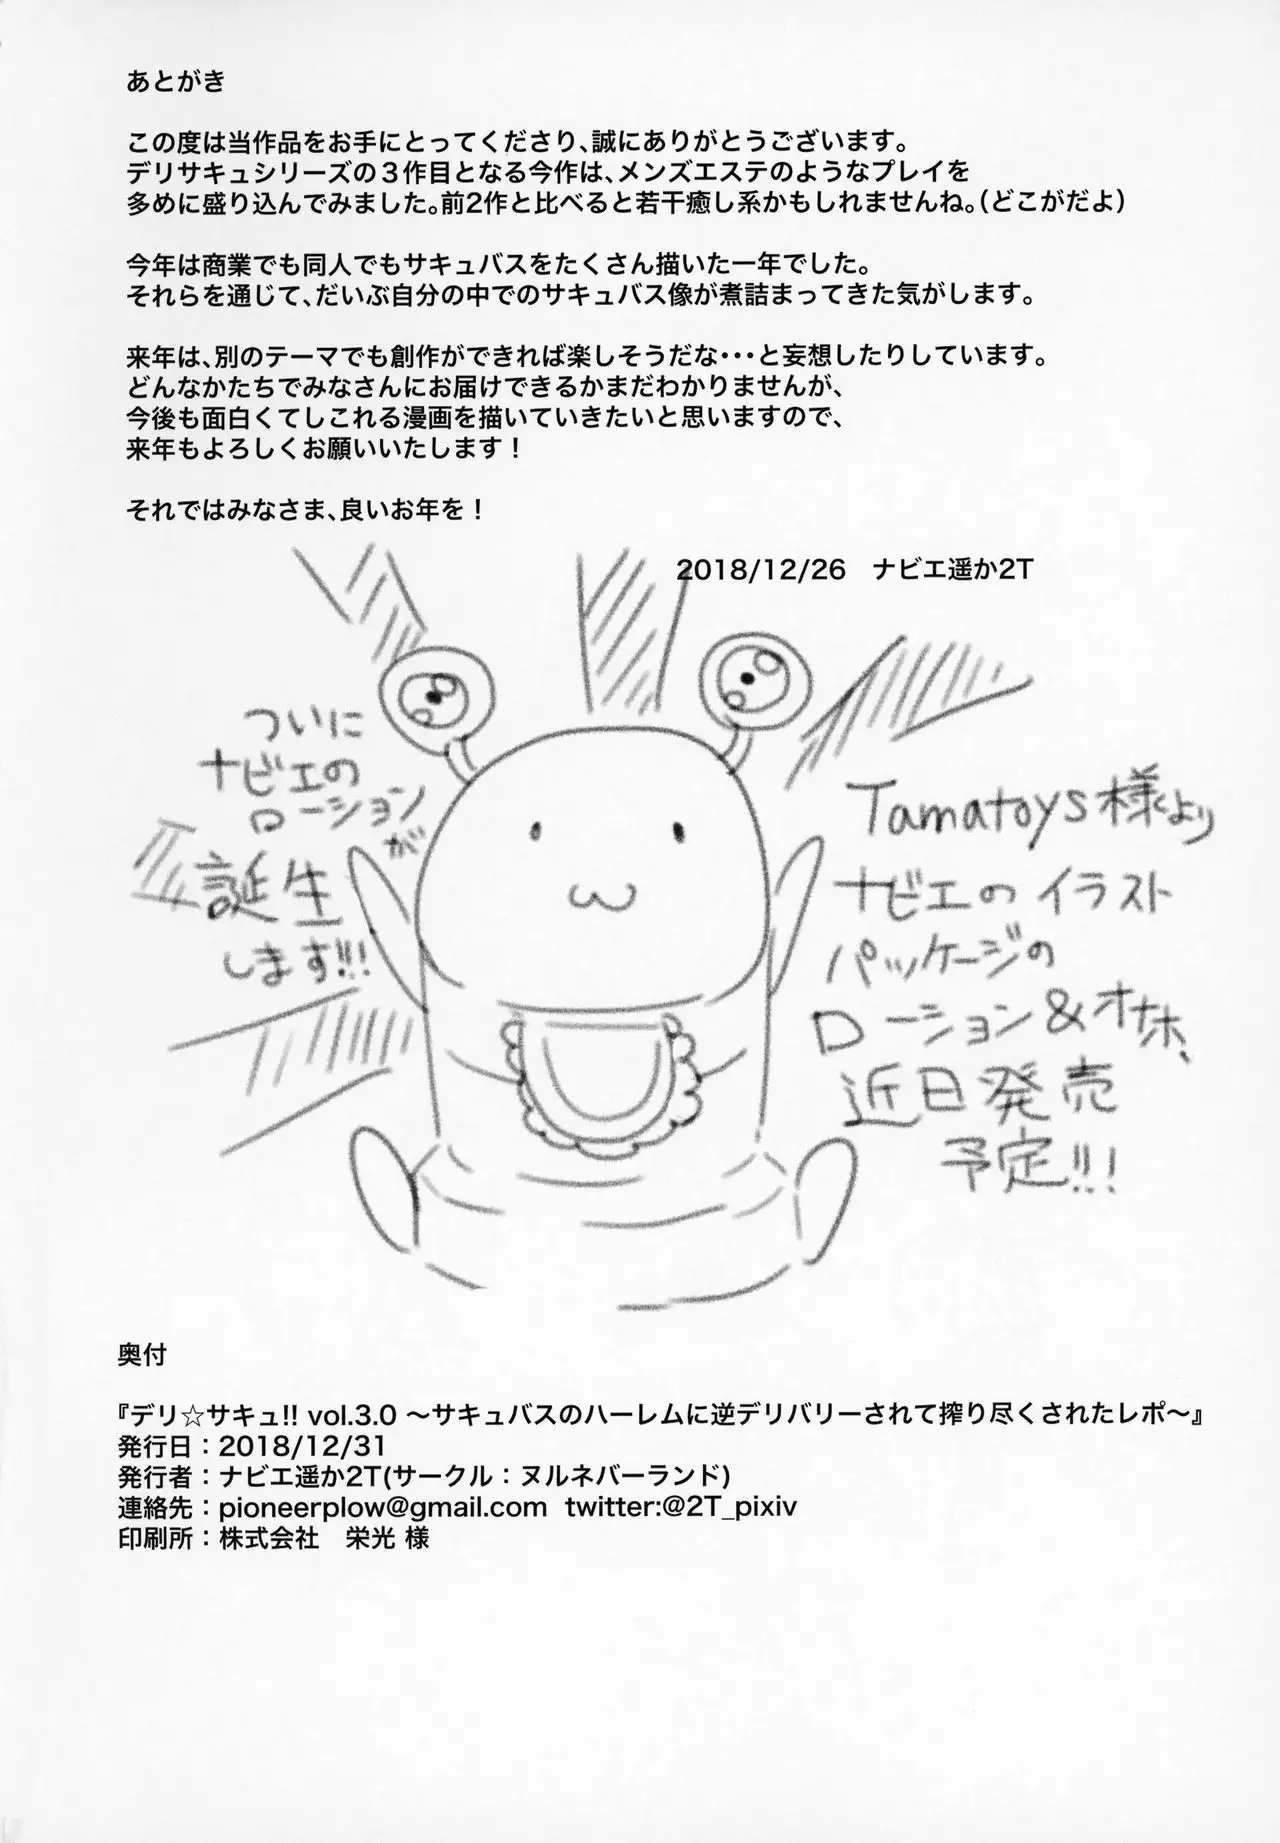 あとがき
この度は当作品をお手にとってくださり、誠にありがとうございます。
デリサキュシリーズの3作目となる今作は、メンズエステのようなプレイを
多めに盛り込んでみました。前2作と比べると若干癒し系かもしれませんね。(どこがだよ)
今年は商業でも同人でもサキュバスをたくさん描いた一年でした。
それらを通じて、だいぶ自分の中でのサキュバス像が煮詰まってきた気がします。
来年は、別のテーマでも創作ができれば楽しそうだな・・・と妄想したりしています。
どんなかたちでみなさんにお届けできるかまだわかりませんが、
今後も面白くてしこれる漫画を描いていきたいと思いますので、
来年もよろしくお願いいたします！
それではみなさま、良いお年を！
2018/12/26　ナビエ遥か2T
ついに
ナビエの
ローションが
誕生
します!!!
Tamatoys様より
ナビエのイラスト
パッケージの
ローション&オナホ、
近日発売
予定!!!
奥付
『デリ☆サキュ!! vol.3.0 〜サキュバスのハーレムに逆デリバリーされて搾り尽くされたレポ〜』
発行日：2018/12/31
発行者：ナビエ遥か2T(サークル：ヌルネバーランド)
連絡先：pioneerplow@gmail.com twitter:@2T_pixiv
印刷所：株式会社　栄光 様